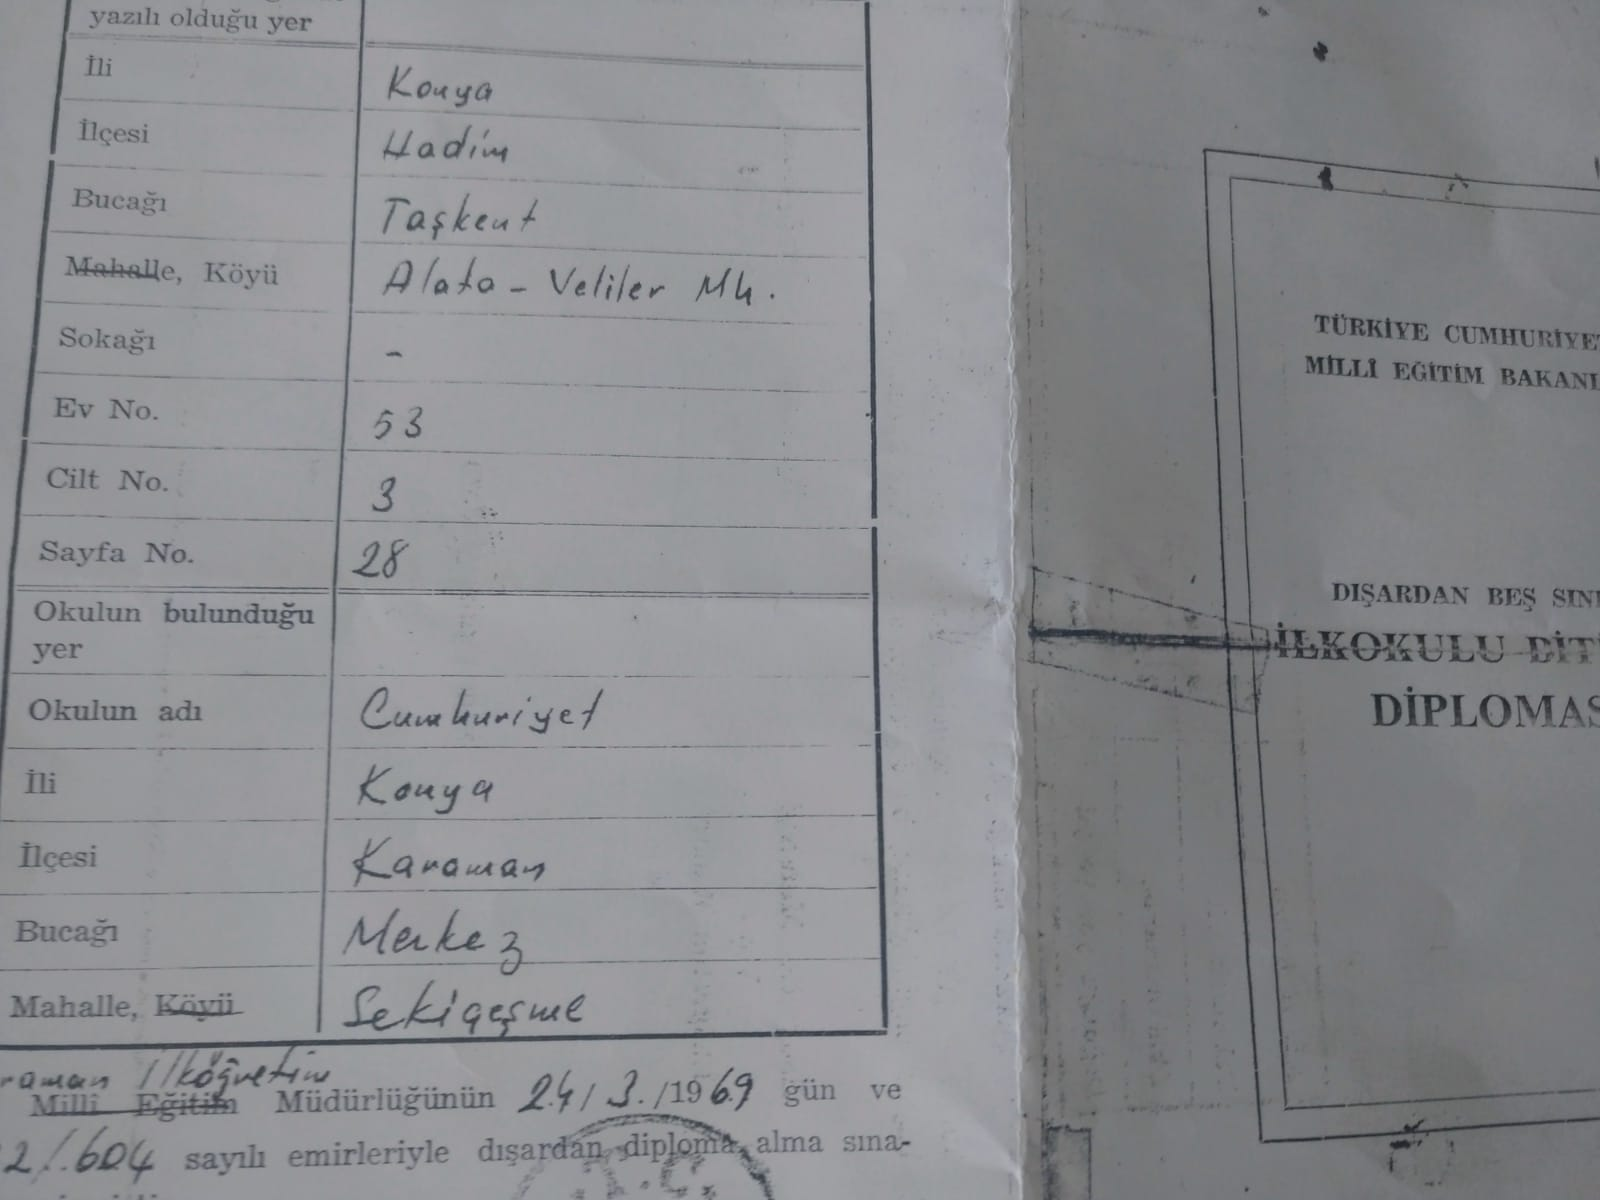 yazılı olduğu yer
İli Konya
İlçesi Hadim
Bucağı Taşkent
Mahalle, Köyü Alata - Veliler Mh.
Sokağı -
Ev No. 53
Cilt No. 3
Sayfa No. 28
Okulun bulunduğu
yer
Okulun adı Cumhuriyet
İli Konya
İlçesi Karaman
Bucağı Merkez
Mahalle, Köyü Sekiçeşme
raman İlköğretim
Millî Eğitim Müdürlüğünün 24/3./1969 gün ve
2/.604 sayılı emirleriyle dışardan diploma alma sına-
TÜRKİYE CUMHURİYET
MİLLÎ EĞİTİM BAKANL
DIŞARDAN BEŞ SINI
İLKOKULU BİT
DİPLOMAS